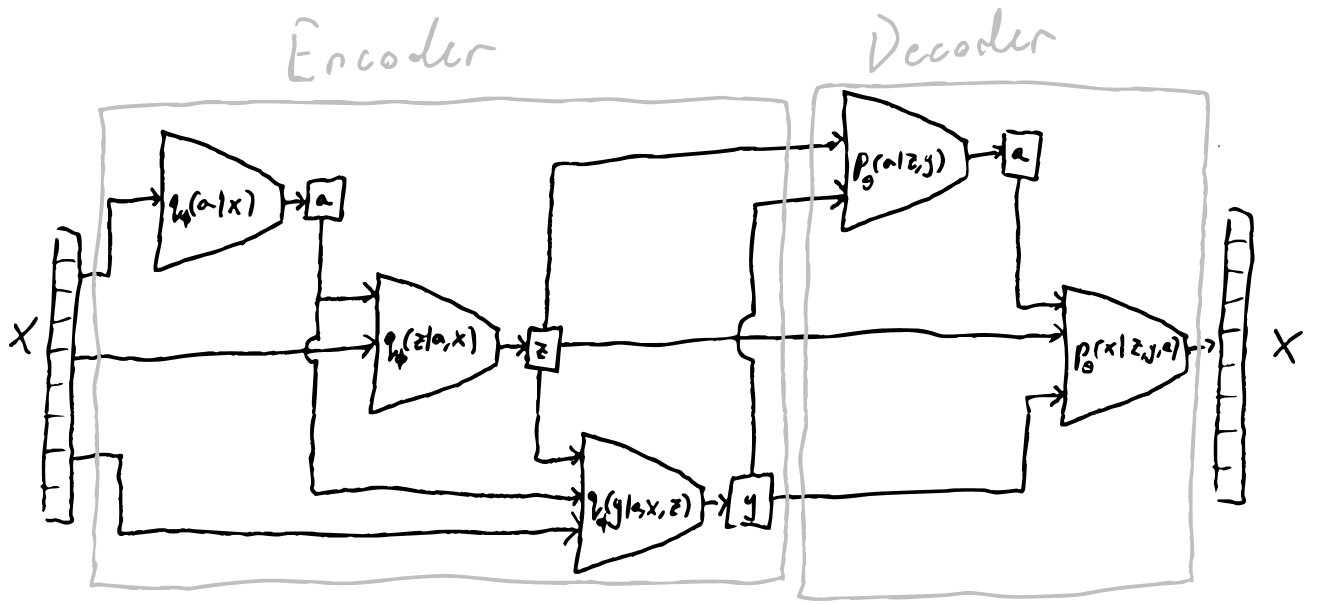 Encoder
Decoder
qφ(a|x)
a
X
qφ(z|a,x)
z
qφ(y|a,x,z)
y
pθ(a|z,y)
a
pθ(x|z,y,a)
X